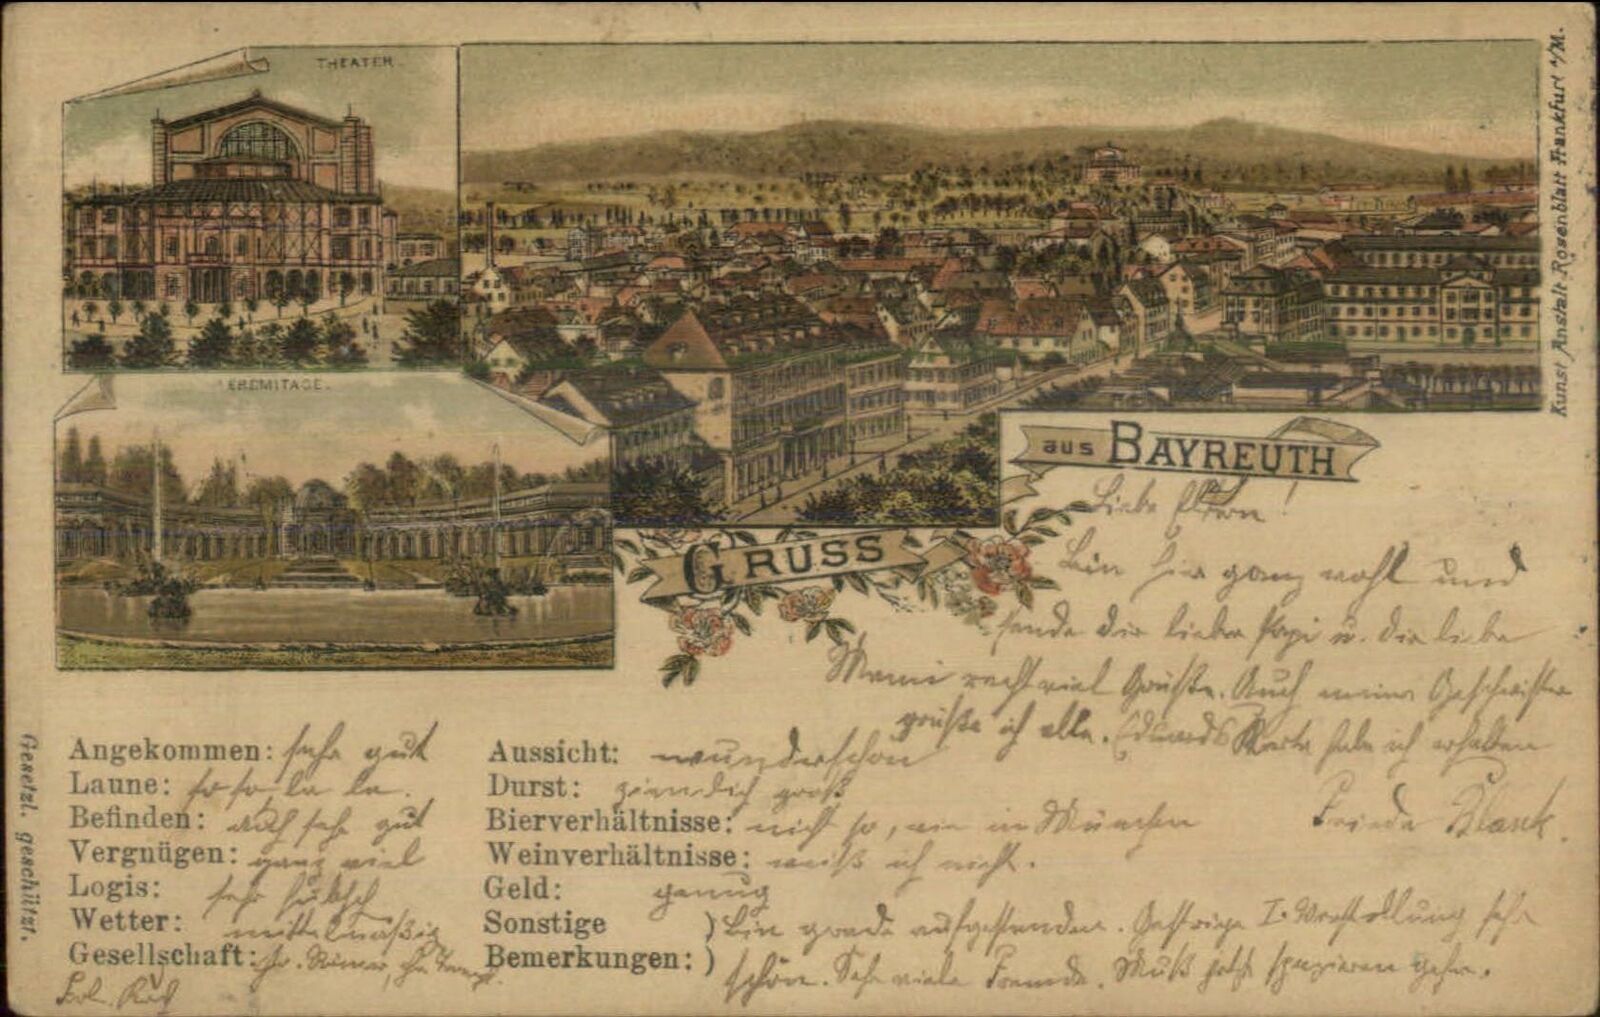 THEATER.
EREMITAGE.
Kunst Anstalt Rosenblatt Frankfurt a/M.
GRUSS
aus BAYREUTH
Liebe Eltern!
Bin hier ganz wohl und
sende dir lieber Papi u. die liebe
Mami recht viel Grüße. Auch meine Geschwister
grüße ich alle. Eduards Karte habe ich erhalten
Frieda Blank.
Angekommen: sehr gut
Laune: so so la la.
Befinden: auch sehr gut
Vergnügen: ganz viel
Logis: sehr hübsch
Wetter: mittelmäßig
Gesellschaft:
Aussicht: wunderschön
Durst: ziemlich groß
Bierverhältnisse: nicht so, wie in München
Weinverhältnisse: weiß ich nicht.
Geld: genug
Sonstige ) Bin grade aufgestanden. Gestrige I. Vorstellung sehr
Bemerkungen: ) schön. Sehr viele Fremde. Muß jetzt spazieren gehn.
Gesetzl. geschützt.